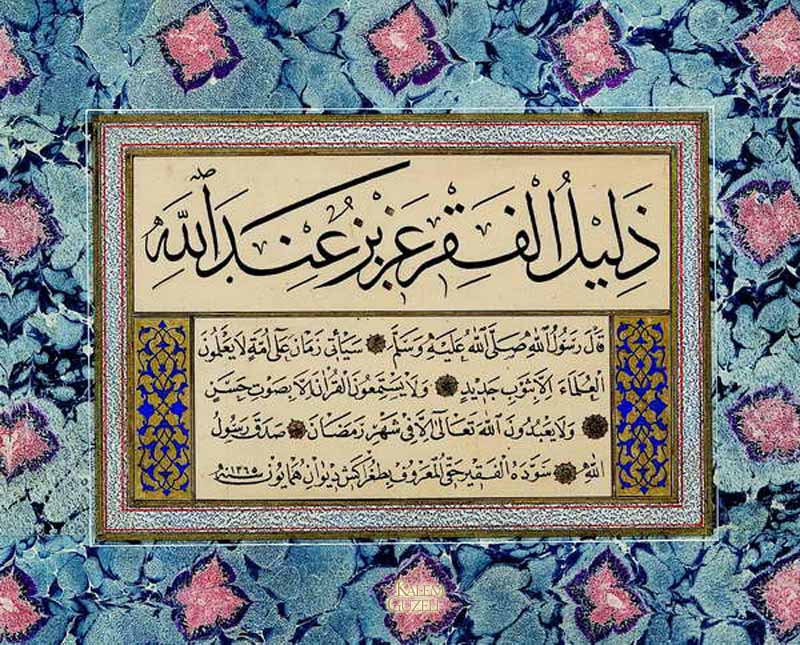 ذَلِيلُ الْفَقْرِ عَزِيزٌ عِنْدَ اللَّهِ
قَالَ رَسُولُ اللهِ صَلَّى اللهُ عَلَيْهِ وَسَلَّمَ سَيَأْتِي زَمَانٌ عَلَى أُمَّةٍ لَا يَعْلَمُونَ
الْعُلَمَاءَ إِلَّا بِثَوْبٍ جَدِيدٍ وَلَا يَسْتَمِعُونَ الْقُرْآنَ إِلَّا بِصَوْتٍ حَسَنٍ
وَلَا يَعْبُدُونَ اللهَ تَعَالَى إِلَّا فِي شَهْرِ رَمَضَانَ صَدَقَ رَسُولُ
اللهِ سَوَّدَهُ الْفَقِيرُ حَقِّي الْمَعْرُوفُ بِطُغْرَاكَشِ دِيوَانِ هُمَايُونْ سنه ١٣٦٥
KALEM
GÜZELİ